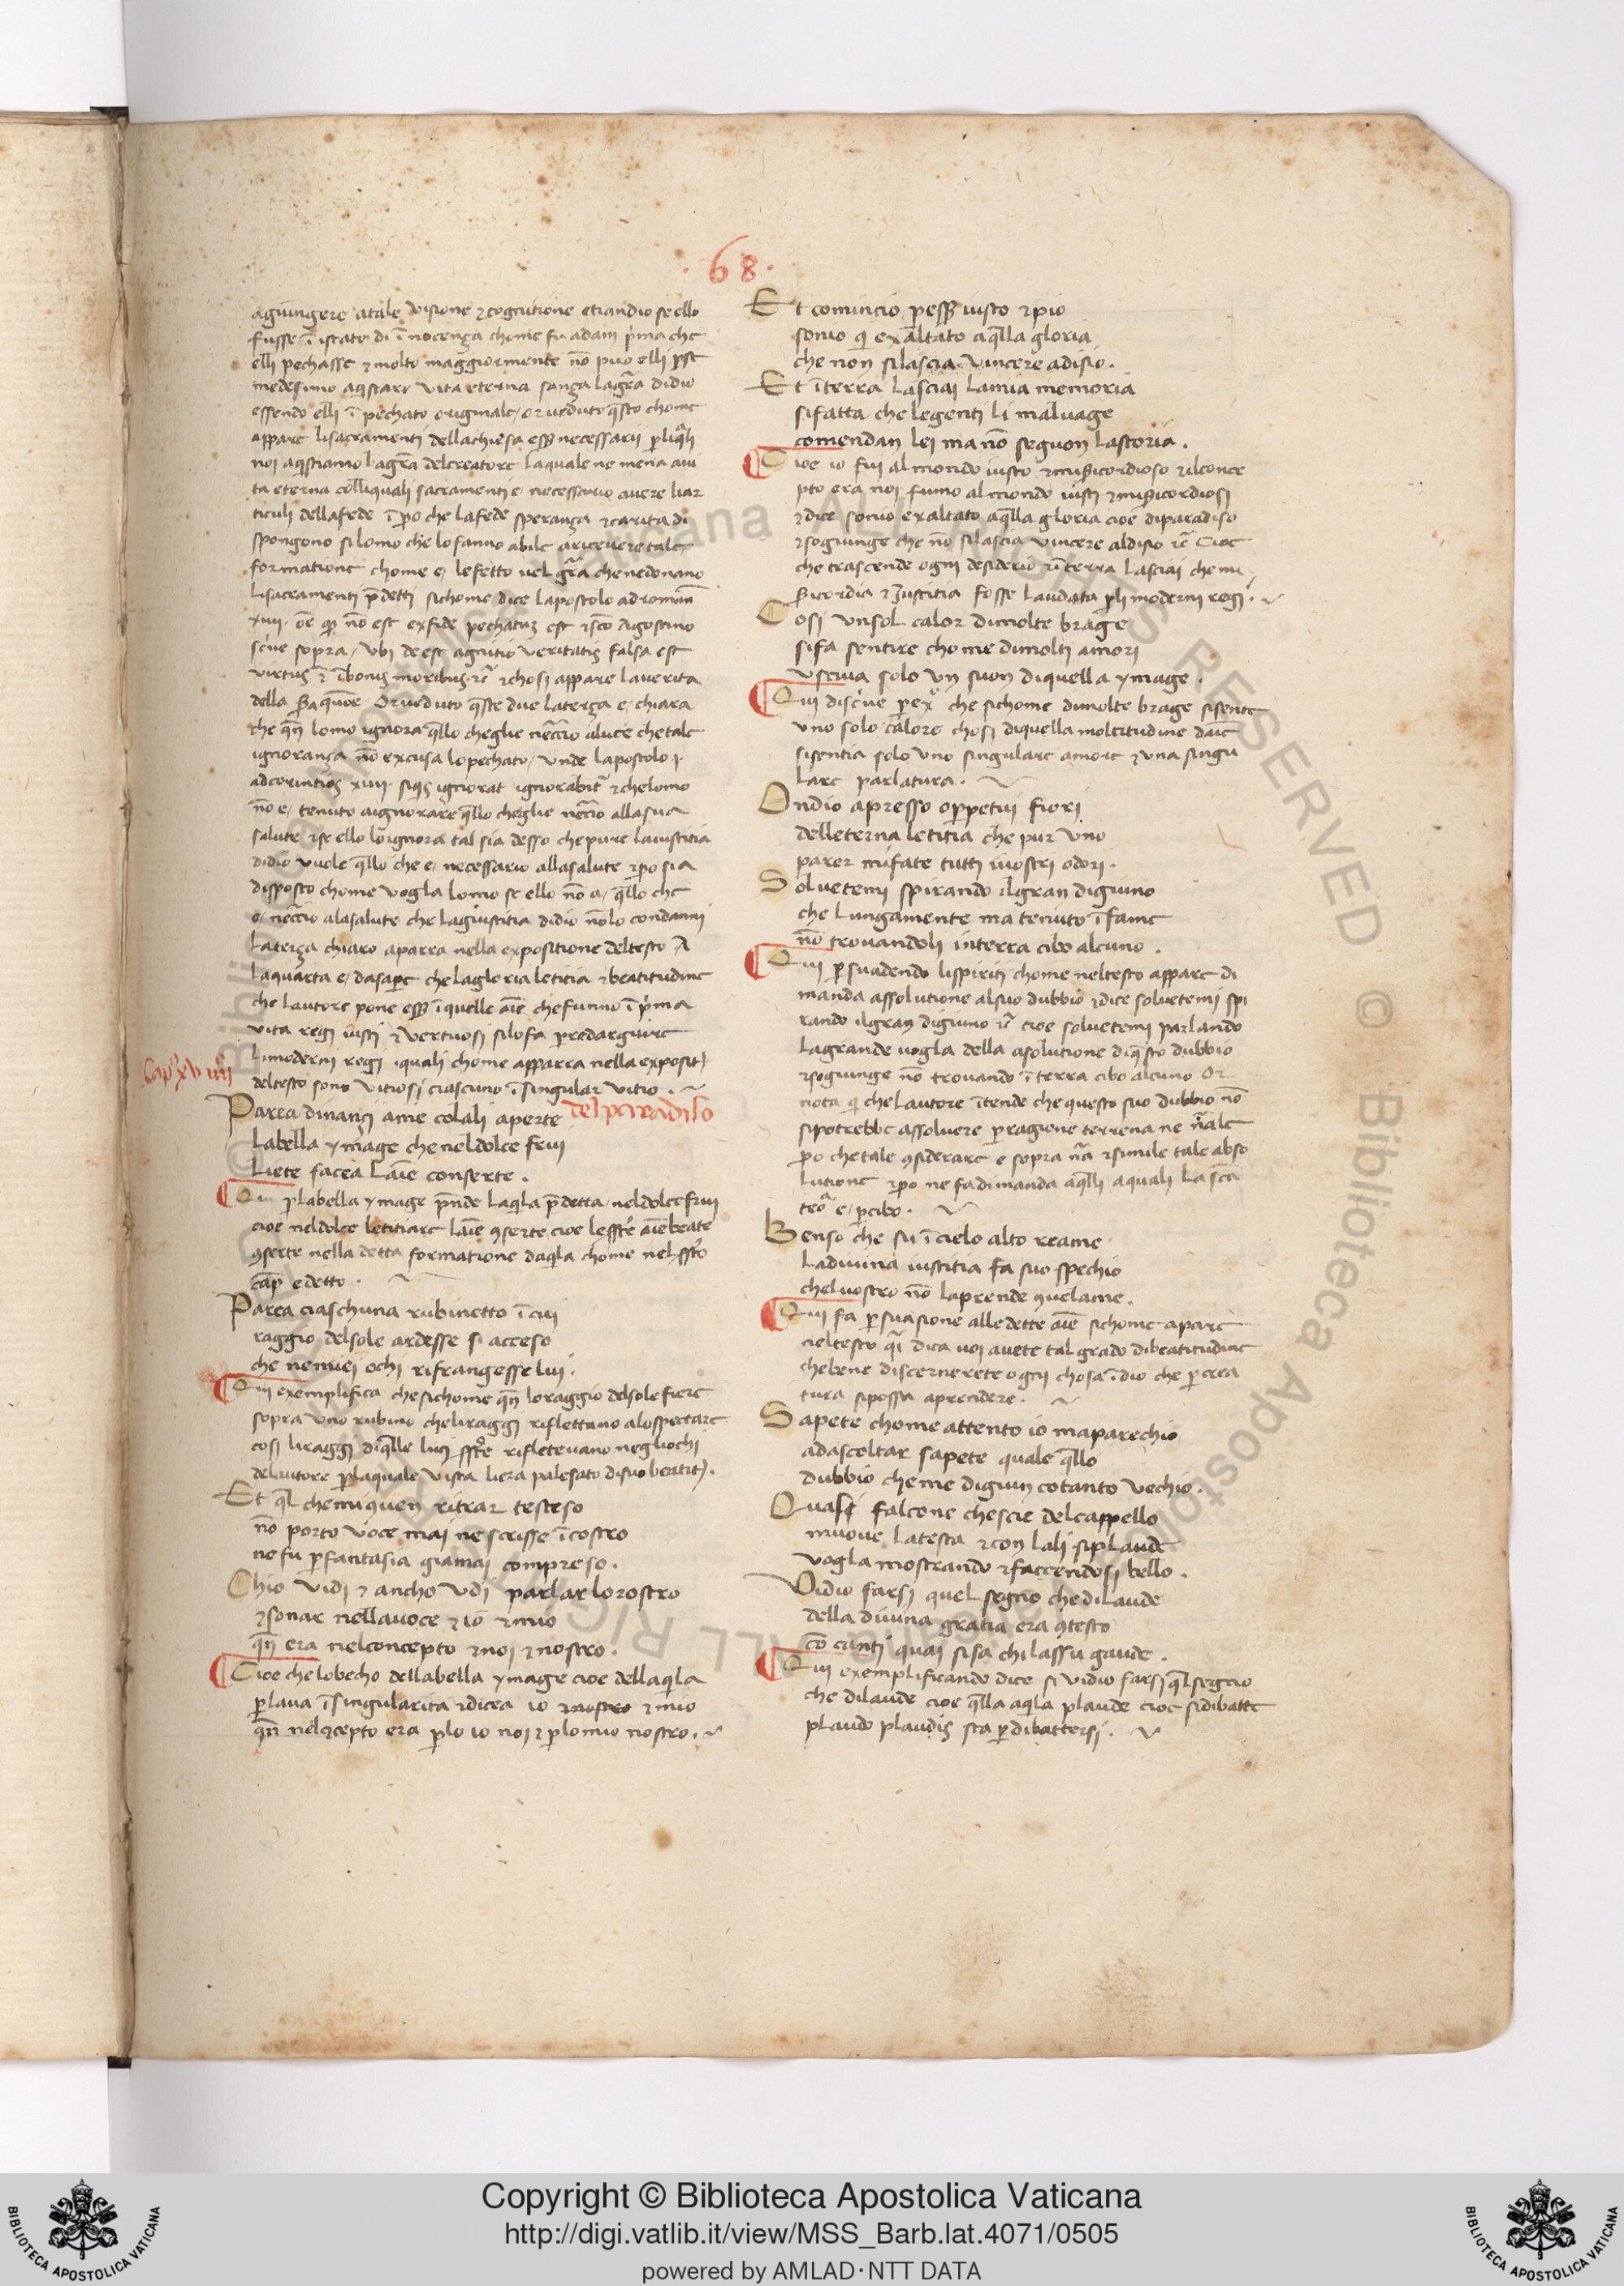 .68.
agiungere atale visione ⁊ cognitione etiandio se ello
fusse ī istato di īnocenza chome fu adam p̃ma che
elli pechasse ⁊ molto maggiormente nō puo elli p̱ se
medesimo aq̃stare vita eterna sanza lagr̄a didio
essendo elli ī pechato originale / or veduto q̃sto chome
appare lisacramenti dellachiesa ess̱ necessarii p̱ liq̃li
noi aq̃stiamo lagr̄a delcreatore laquale ne mena avi
ta eterna colliquali sacramenti e / necessario avere liar
ticuli dellafede īp̱o che lafede speranza ⁊ carita di
spongono silomo che lo fanno abile aricevere tale
formatione chome e / lefetto vel gr̄a chenedonano
lisacramenti p̄detti sichome dice lapostolo ad roman̄
xiiii. oē qḏ nō est exfide pechatuz est ⁊ sco Agostino
scíve sopra / Vbi deest agnitio veritatis falsa est
virtus ⁊ ī bonis moribus ⁊c̄ ⁊ chosi appare laverita
della quōe Or veduto q̃ste due laterza e / chiara
che q̄n lomo ignora q̃llo cheglie nec̄c̄io aluce chetale
ignoranza nō excusa lopechato / vnde lapostolo p.
adcorintios xiiii siq̃s ignorat ignorabit̄ ⁊ chelomo
nō e / tenuto aignorare q̃llo cheglie nec̄io allasua
salute ⁊ se ello loignora tal sia desso che pure laiustitia
didio vuole q̃llo che e / necessario allasalute ⁊ p̱o sia
disposto chome vogla lomo se ello nō a / q̃llo che
e / nec̄c̄io alasalute che lagiustitia didio nōlo condanni
Laterza chiaro aparra nella expositione deltesto A
Laquarta e / dasap̱e che lagloria letitia ⁊ beatitudine
che lautore pone ess̱ īquelle aīe chefunno ī p̃ma
vita regi iusti ⁊ vertuosi silofa p̱ redarguire
limoderni regi iquali chome apparra nella exposit̄
deltesto sono vitiosi ciascuno ī singular vitio.
Cap̊ xviiii
del paradiso
Parea dinanzi ame colali aperte
Labella ymage che neldolce frui
Liete facea Laīe conserte.
Qui p̱ labella ymage p̄nde laq̃la p̄detta / neldolce frui
cioe neldolce letitiare laīe ꝯserte cioe lessr̄e aīe beate
ꝯserte nella detta formatione daq̃la chome nel ss̄to
cap̄ edetto.
Parea ciaschuna rubinetto ī cui
raggio delsole ardesse si acceso
che nemiei ochi rifrangesse lui.
Qui exemplifica chesichome q̄n loraggio delsole fiere
sopra vno rubino cheliraggi riflettano alospectare
cosi liraggi diq̃lle luci ss̄te rifletevano negliochi
delautore p̱ laquale vista liera palesato disuo beatit̄.
Et q̃l chemiquen ritrar testeso
nō porto voce mai ne scrisse īcostro
ne fu p̱ fantasia giamai compreso.
Chio vidi ⁊ ancho vdi parlar lorostro
⁊ sonar nellavoce ⁊ io ⁊ mio
q̄n era nelconcepto ⁊ noi ⁊ nostro.
Cioe chelobecho dellabella ymage cioe dellaq̃la
p̱lava ī singularita ⁊ dicea io ⁊ nostro ⁊ mio
q̄n nelꝯcepto era p̱lo io noi ⁊ p̱lo mio nostro.
Et comincio p̱ ess̱ iusto ⁊ pio
sonio q̃ exaltato aq̃lla gloria
che non silascia vincere adisio.
Et īterra lasciai lamia memoria
sifatta che legenti li malvage
comendan lei ma nō seguon lastoria.
Cioe io fui al mondo iusto ⁊ mis̱icordioso ⁊ ilconce
pto era noi fumo al mondo iusti ⁊ mis̱icordiosi
⁊ dice sonio exaltato aq̃lla gloria cioe diparadiso
⁊ sogiunge che nō silascia vincere aldisio ⁊c̄ Cioe
che trascende ogni desiderio ⁊ ī terra lasciai che mi
s̱icordia ⁊ Iustitia fosse laudata p̱li moderni regi.
Cosi vnsol calor dimolte brage
sifa sentire chome dimolti amori
vsciva solo vn suon diquella ymage.
Qui discíve p̱ exo̊ che sichome dimolte brage sisente
vno solo calore chosi diquella moltitudine daīe
sisentia solo vno singulare amore ⁊ vna singu
lare parlatura.
Ondio apresso o p̱petui fiori
delleterna letitia che pur vno
parer mifate tutti ivostri odori.
Solvetemi spirando ilgran digiuno
che lungamente ma tenuto ī fame
nō trovandoli interra cibo alcuno.
Qui p̱suadendo lispiriti chome neltesto appare di
manda assolutione alsuo dubbio ⁊ dice solvetemi spi
rando ilgran digiuno ⁊c̄ cioe solvetemi parlando
lagrande vogla della asolutione diq̃sto dubbio
⁊ sogiunge nō trovando īterra cibo alcuno Or
nota q̃ che lautore ītende che questo suo dubbio nō
sipotrebbe assolvere p̱ ragione terrena ne n̄ale
p̱o che tale ꝯsiderare e sopra n̄a ⁊ simile tale abso
lutione ⁊ p̱o ne fa dimanda aq̃lli aquali la sc̄a
teo̊ e / p̱ cibo.
Benso che su ī cielo alto reame
Ladivina iustitia fa suo spechio
chelvostro nō laprende ꝯvelame.
Qui fa p̱suasione alledette aīe sichome apare
neltesto q̃i dica voi avete tal grado dibeatitudine
chebene discernerete ogni chosa īdio che p̱ crea
tura sipossa aprendere.
Sapete chome attento io maparechio
adascoltar sapete quale q̃llo
dubbio cheme digiun cotanto vechio.
Quasi falcone chescie delcappello
muove latesta ⁊ con lali siplaude
vogla mostrando ⁊ faccendosi bello.
Vidio farsi quel segno che dilaude
della divina gratia era ꝯtesto
cō canti quai sisa chi lassu gaude.
Qui exemplificando dice si vidio farsi q̃l segno
che dilaude cioe q̃lla aq̃la plaude cioe sidibatte
plaudo plaudis sta p̱ dibattersi.
Copyright © Biblioteca Apostolica Vaticana
http://digi.vatlib.it/view/MSS_Barb.lat.4071/0505
powered by AMLAD·NTT DATA
BIBLIOTECA APOSTOLICA VATICANA
BIBLIOTECA APOSTOLICA VATICANA